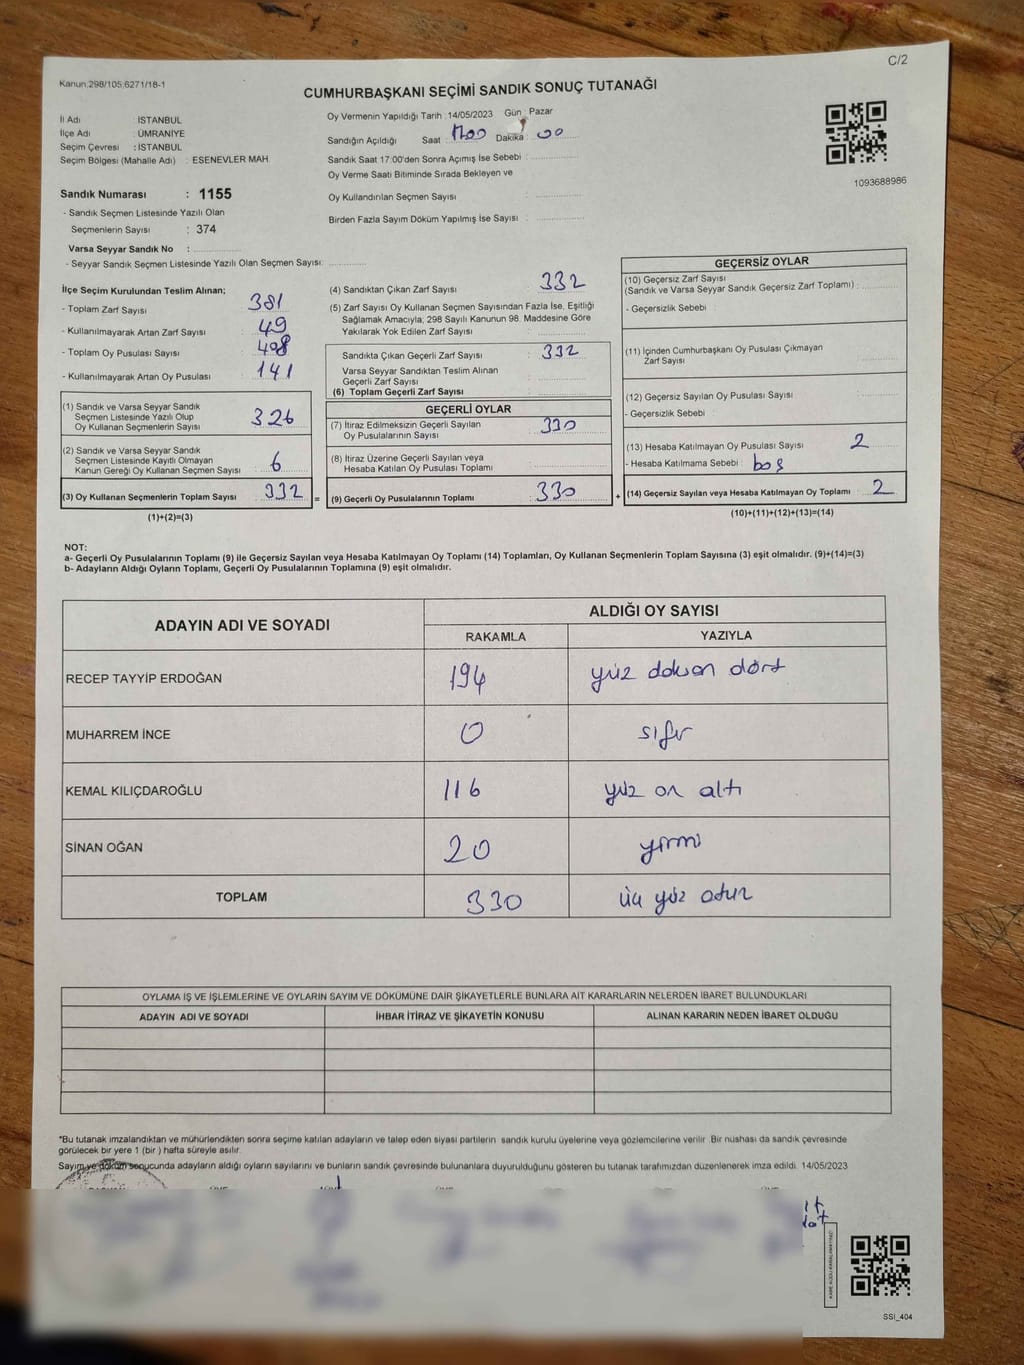 C/2
Kanun:298/105;6271/18-1
CUMHURBAŞKANI SEÇİMİ SANDIK SONUÇ TUTANAĞI
İl Adı : İSTANBUL
İlçe Adı : ÜMRANİYE
Seçim Çevresi : İSTANBUL
Seçim Bölgesi (Mahalle Adı) : ESENEVLER MAH.
Sandık Numarası : 1155
- Sandık Seçmen Listesinde Yazılı Olan
Seçmenlerin Sayısı : 374
Varsa Seyyar Sandık No :
- Seyyar Sandık Seçmen Listesinde Yazılı Olan Seçmen Sayısı:
Oy Vermenin Yapıldığı Tarih :14/05/2023 Gün : Pazar
Sandığın Açıldığı Saat : 1700 Dakika : 00
Sandık Saat 17:00'den Sonra Açımış İse Sebebi :
Oy Verme Saati Bitiminde Sırada Bekleyen ve
Oy Kullandırılan Seçmen Sayısı :
Birden Fazla Sayım Döküm Yapılmış İse Sayısı :
1093688986
İlçe Seçim Kurulundan Teslim Alınan;
- Toplam Zarf Sayısı : 381
- Kullanılmayarak Artan Zarf Sayısı : 49
- Toplam Oy Pusulası Sayısı : 498
- Kullanılmayarak Artan Oy Pusulası : 141
(1) Sandık ve Varsa Seyyar Sandık
Seçmen Listesinde Yazılı Olup
Oy Kullanan Seçmenlerin Sayısı : 326
(2) Sandık ve Varsa Seyyar Sandık
Seçmen Listesinde Kayıtlı Olmayan
Kanun Gereği Oy Kullanan Seçmen Sayısı : 6
(3) Oy Kullanan Seçmenlerin Toplam Sayısı : 332 =
(1)+(2)=(3)
(4) Sandıktan Çıkan Zarf Sayısı : 332
(5) Zarf Sayısı Oy Kullanan Seçmen Sayısından Fazla İse, Eşitliği
Sağlamak Amacıyla; 298 Sayılı Kanunun 98. Maddesine Göre
Yakılarak Yok Edilen Zarf Sayısı :
Sandıkta Çıkan Geçerli Zarf Sayısı : 332
Varsa Seyyar Sandıktan Teslim Alınan
Geçerli Zarf Sayısı :
(6) Toplam Geçerli Zarf Sayısı :
GEÇERLİ OYLAR
(7) İtiraz Edilmeksizin Geçerli Sayılan
Oy Pusulalarının Sayısı : 330
(8) İtiraz Üzerine Geçerli Sayılan veya
Hesaba Katılan Oy Pusulası Toplamı :
(9) Geçerli Oy Pusulalarının Toplamı : 330 +
GEÇERSİZ OYLAR
(10) Geçersiz Zarf Sayısı
(Sandık ve Varsa Seyyar Sandık Geçersiz Zarf Toplamı) :
- Geçersizlik Sebebi :
(11) İçinden Cumhurbaşkanı Oy Pusulası Çıkmayan
Zarf Sayısı :
(12) Geçersiz Sayılan Oy Pusulası Sayısı :
- Geçersizlik Sebebi :
(13) Hesaba Katılmayan Oy Pusulası Sayısı : 2
- Hesaba Katılmama Sebebi : boş
(14) Geçersiz Sayılan veya Hesaba Katılmayan Oy Toplamı : 2
(10)+(11)+(12)+(13)=(14)
NOT:
a- Geçerli Oy Pusulalarının Toplamı (9) ile Geçersiz Sayılan veya Hesaba Katılmayan Oy Toplamı (14) Toplamları, Oy Kullanan Seçmenlerin Toplam Sayısına (3) eşit olmalıdır. (9)+(14)=(3)
b- Adayların Aldığı Oyların Toplamı, Geçerli Oy Pusulalarının Toplamına (9) eşit olmalıdır.
ADAYIN ADI VE SOYADI ALDIĞI OY SAYISI
RAKAMLA YAZIYLA
RECEP TAYYİP ERDOĞAN 194 yüz doksan dört
MUHARREM İNCE 0 sıfır
KEMAL KILIÇDAROĞLU 116 yüz on altı
SİNAN OĞAN 20 yirmi
TOPLAM 330 üç yüz otuz
OYLAMA İŞ VE İŞLEMLERİNE VE OYLARIN SAYIM VE DÖKÜMÜNE DAİR ŞİKAYETLERLE BUNLARA AİT KARARLARIN NELERDEN İBARET BULUNDUKLARI
ADAYIN ADI VE SOYADI İHBAR İTİRAZ VE ŞİKAYETİN KONUSU ALINAN KARARIN NEDEN İBARET OLDUĞU
*Bu tutanak imzalandıktan ve mühürlendikten sonra seçime katılan adayların ve talep eden siyasi partilerin sandık kurulu üyelerine veya gözlemcilerine verilir. Bir nushası da sandık çevresinde
görülecek bir yere 1 (bir) hafta süreyle asılır.
Sayım ve döküm sonucunda adayların aldığı oyların sayılarını ve bunların sandık çevresinde bulunanlara duyurulduğunu gösteren bu tutanak tarafımızdan düzenlenerek imza edildi. 14/05/2023
SSI_404